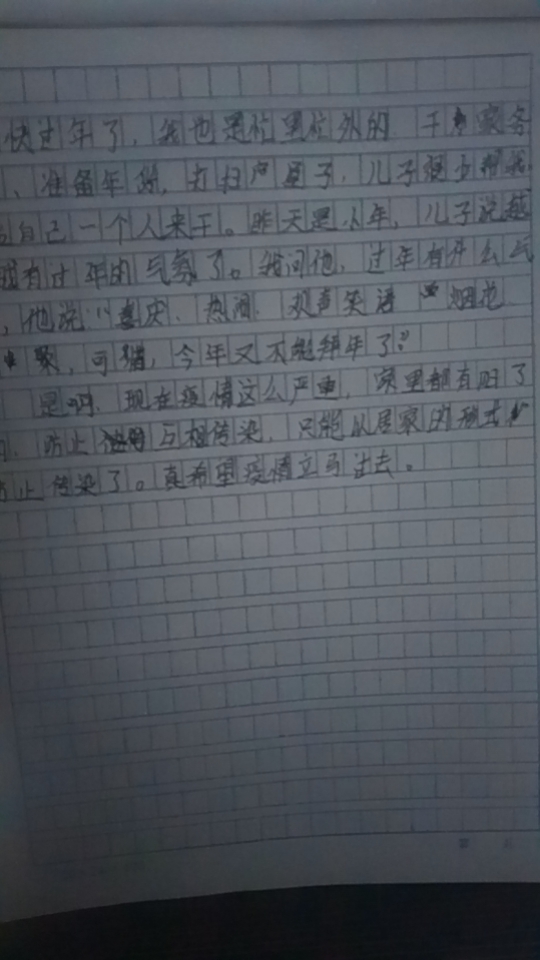 快过年了，我也是忙里忙外的 干 家务
、准备年货，打扫 屋子，儿子很少帮我
自己一个人来干。昨天是小年，儿子说越
没有过年的气氛了。我问他，过年有什么气
，他说“喜庆、热闹、欢声笑语 烟花
聚，可猪，今年又不能拜年了？
是啊，现在疫情这么严重， 里都有归了
防止 互相传染，只能以居家的形式
止传染了。真希望疫情立马过去。
第 页